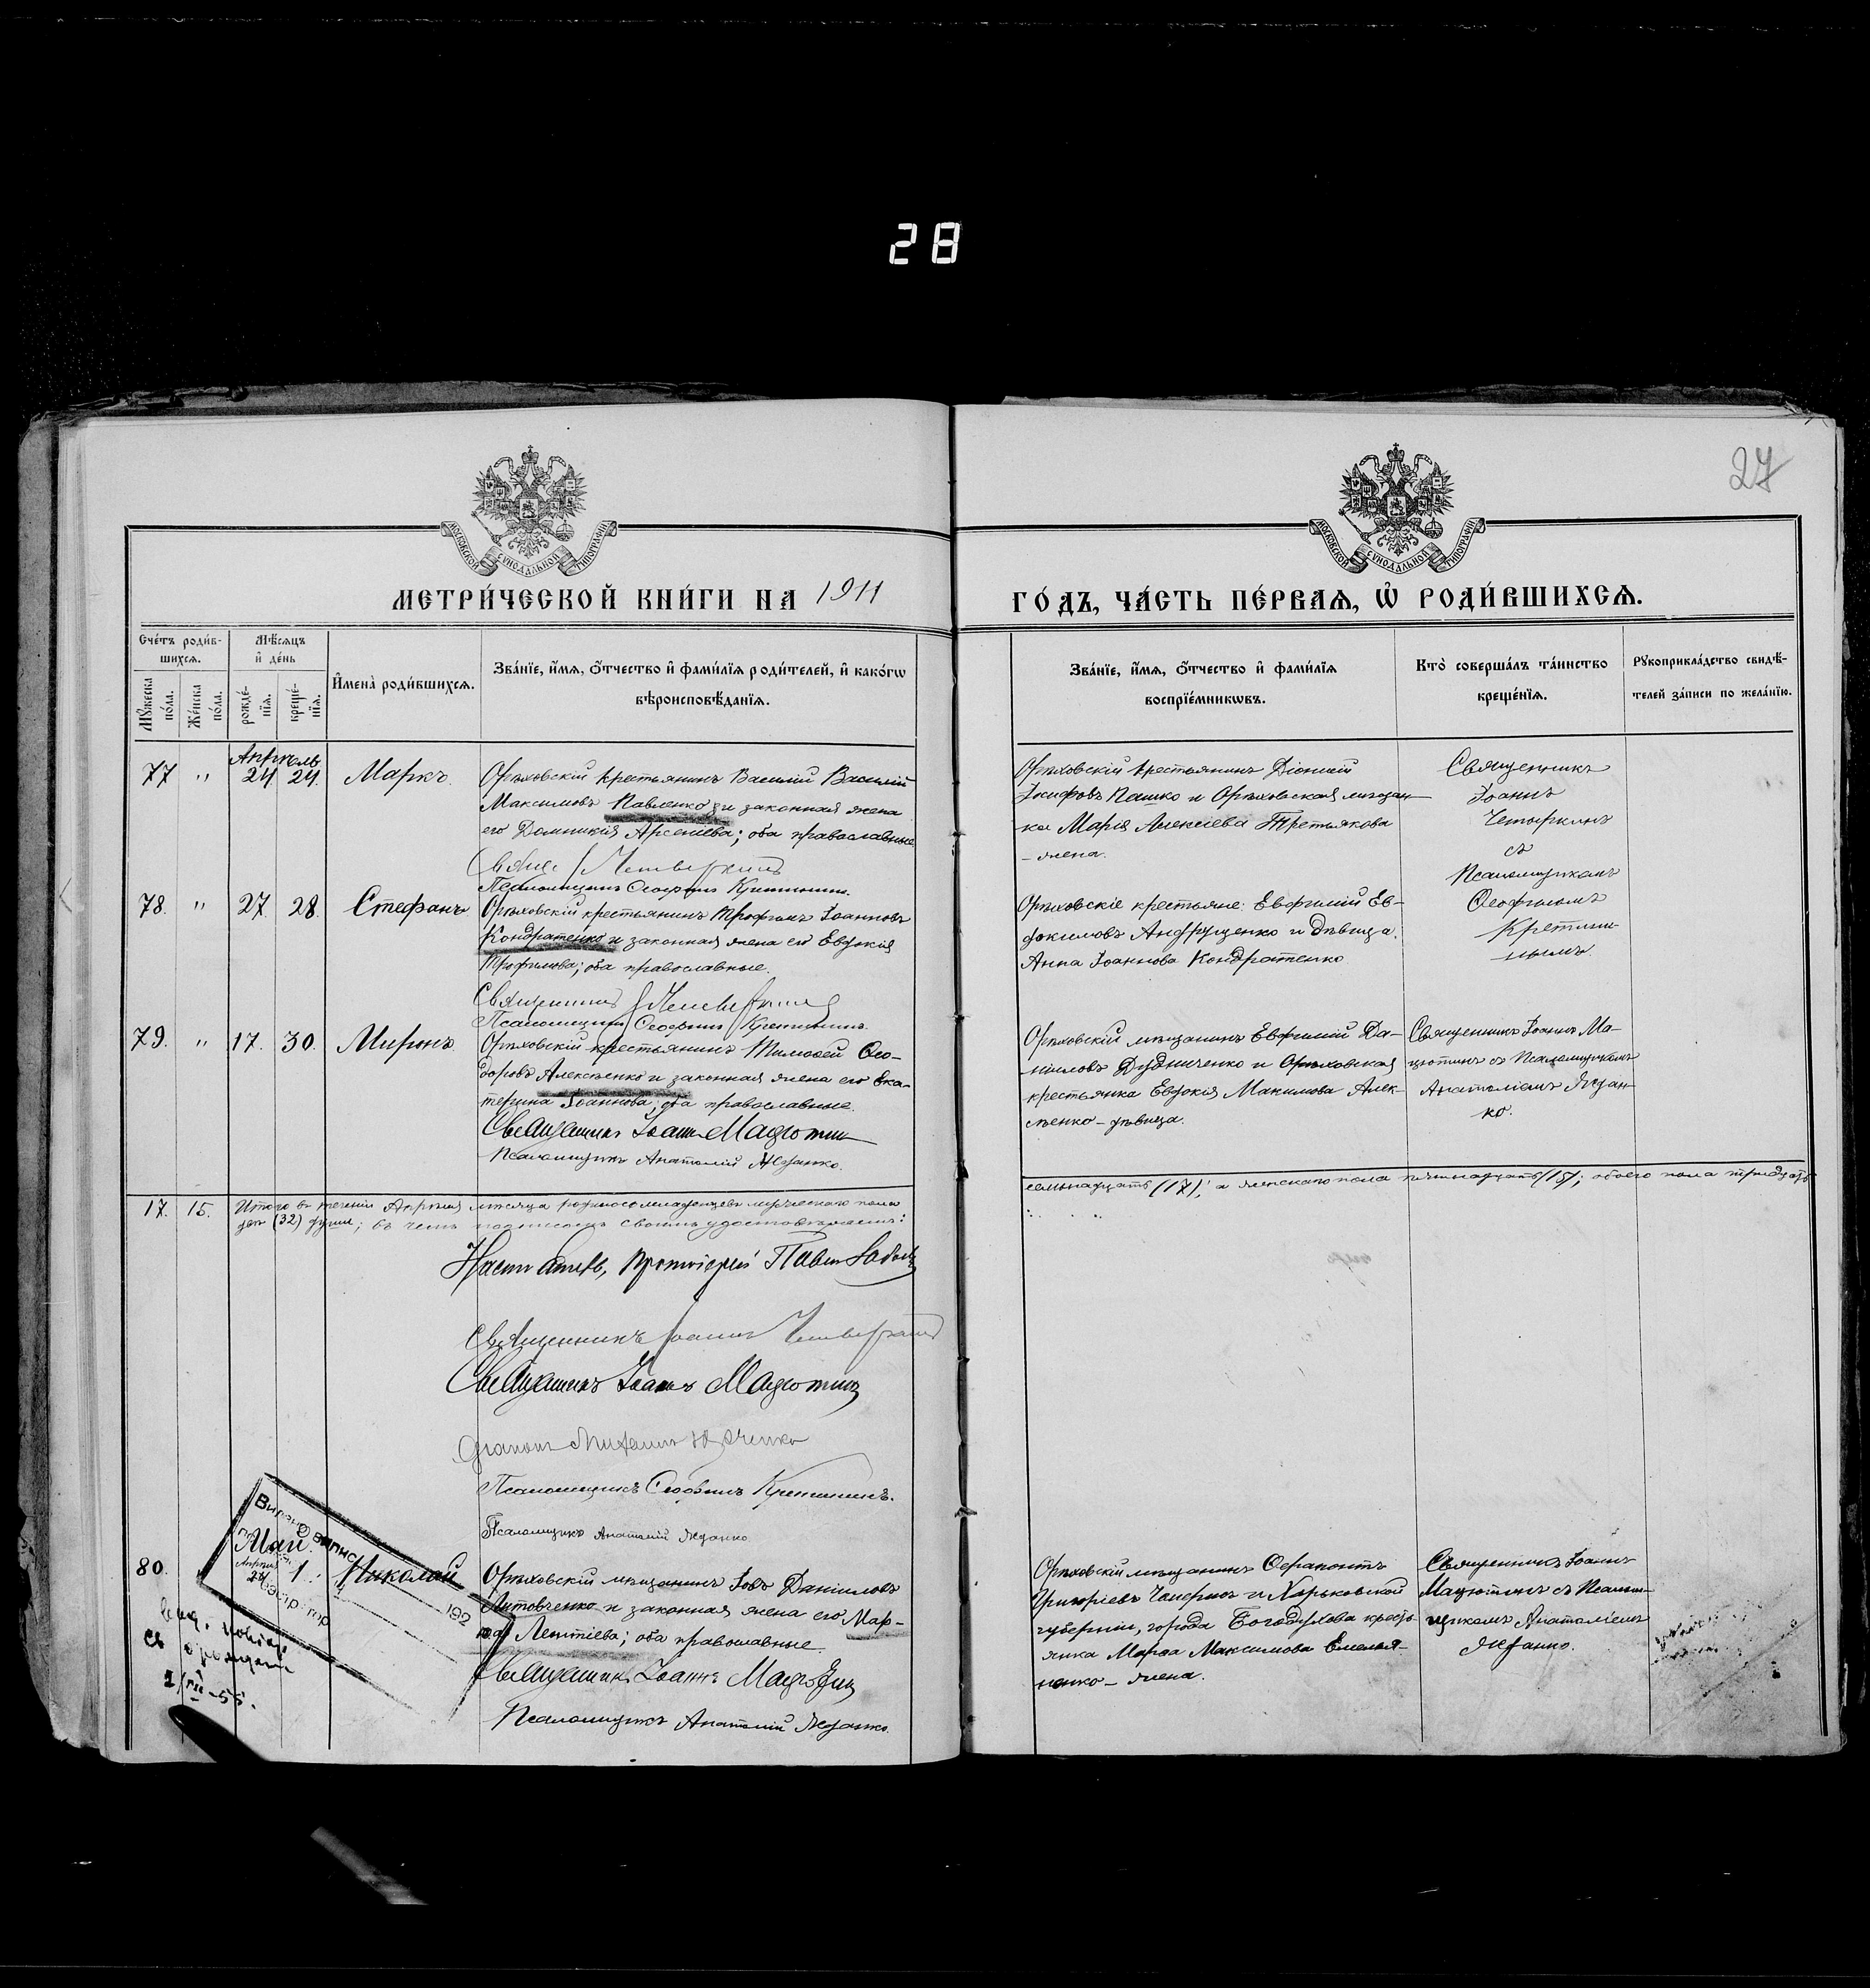 28
27
МОСКОВСКОЙ СУНОДАЛЬНОЙ ТИПОГРАФІИ
МОСКОВСКОЙ СУНОДАЛЬНОЙ ТИПОГРАФІИ
МЕТРИ́ЧЕСКОЙ КНИ́ГИ НА 1911
ГО́ДЪ, ЧА́СТЬ ПЕ́РВАѦ, Ѡ҆ РОДИ́ВШИХСѦ.
Сче́тъ роди́в-
шихсѧ.
Мѣ́сѧцъ
и҆ де́нь
Мꙋ́жеска
по́ла.
Же́нска
по́ла.
рожде́-
нїѧ.
креще́-
нїѧ.
И҆мена̀ роди́вшихсѧ.
Зва́нїе, и҆́мѧ, ѻ҆́тчество и҆ фами́лїѧ роди́телей, и҆ како́гѡ
вѣроисповѣ́данїѧ.
Зва́нїе, и҆́мѧ, ѻ҆́тчество и҆ фами́лїѧ
воспрїе́мникѡвъ.
Кто̀ соверша́лъ та́инство
креще́нїѧ.
Рꙋкоприкла́дство свидѣ́-
телей за́писи по жела́нїю.
Апрѣль
77 " 24 24. Маркъ.
Орѣховскій крестьянинъ Василій Василій
Максимовъ Павленко и законная жена
его Домникія Арсеніева; оба православные
Псаломщикъ Ѳеофилъ Кретининъ.
Орѣховскій крестьянинъ Діонисій
Іосифовъ Пашко и Орѣховская мѣщан-
ка Марія Алексіева Третьякова
- жена.
Священникъ
Іоаннъ
съ
Псаломщикомъ
Ѳеофиломъ
Кретини-
нымъ.
78. " 27. 28. Стефанъ
Орѣховскій крестьянинъ Трофимъ Іоанновъ
Кондратенко и законная жена его Евдокія
Трофимова; оба православные.
Священникъ
Псаломщикъ Ѳеофилъ Кретининъ.
Орѣховскіе крестьяне: Евфимій Ев-
докимовъ Андрущенко и дѣвица
Анна Іоаннова Кондратенко
79. " 17. 30. Миронъ.
Орѣховскій крестьянинъ Тимоѳей Ѳео-
доровъ Алексѣенко и законная жена его Ека-
терина Іоаннова; оба православные.
Священникъ Іоаннъ Мацютинъ
Псаломщикъ Анатолій Жданко.
Орѣховскій мѣщанинъ Евфимій Да-
ніиловъ Дудниченко и Орѣховская
крестьянка Евдокія Максимова Алек-
сѣенко - дѣвица.
Священникъ Іоаннъ Ма-
цютинъ съ Псаломщикомъ
Анатоліемъ Ждан-
ко.
17. 15. Итого въ теченіи Апрѣля мѣсяца родилось младенцевъ мужескаго пола
семьнадцать (17), а женскаго пола пятнадцать (15); обоего пола тридцать
двѣ (32) души; въ чемъ подписомъ своимъ удостовѣряемъ:
Настоятель, Протоіерей Павелъ
Священникъ Іоаннъ
Священникъ Іоаннъ Мацютинъ
Діаконъ Михаилъ
Псаломщикъ Ѳеофилъ Кретининъ.
Псаломщикъ Анатолій Жданко
Май
80. 1. Николай
Апрѣль
24
192
Орѣховскій мѣщанинъ Іовъ Даніиловъ
Литовченко и законная жена его Мар-
ѳа Леонтіева; оба православные.
Священникъ Іоаннъ Мацютинъ
Псаломщикъ Анатолій Жданко.
Орѣховскій мѣщанинъ Ѳерапонтъ
Григоріевъ и Харьковской
губерніи, города Богодухова кресть-
янка Марѳа Максимова Емелья-
ненко - жена.
Священникъ Іоаннъ
Мацютинъ съ Псалом-
щикомъ Анатоліемъ
Жданко.